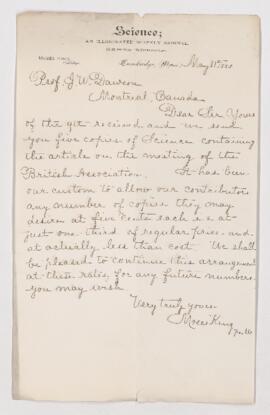 Science;
AN ILLUSTRATED WEEKLY JOURNAL
MOSES KING,
Publisher
Cambridge, Mass., May 11th 188
Prof J. W. Dawson
Montreal, Canada
Dear Sir Yours
of the 9th received and we send
you five copies of Science containing
the article on the meeting of the
British Association. It has been
our custom to allow our contributors
any number of copies they may
desire at five cents each i.e. at
just one third of regular price and
at actually less than cost. We shall
be pleased to continue this arrangement
at these rates for any future numbers
you may wish
Very truly yours
Moses King